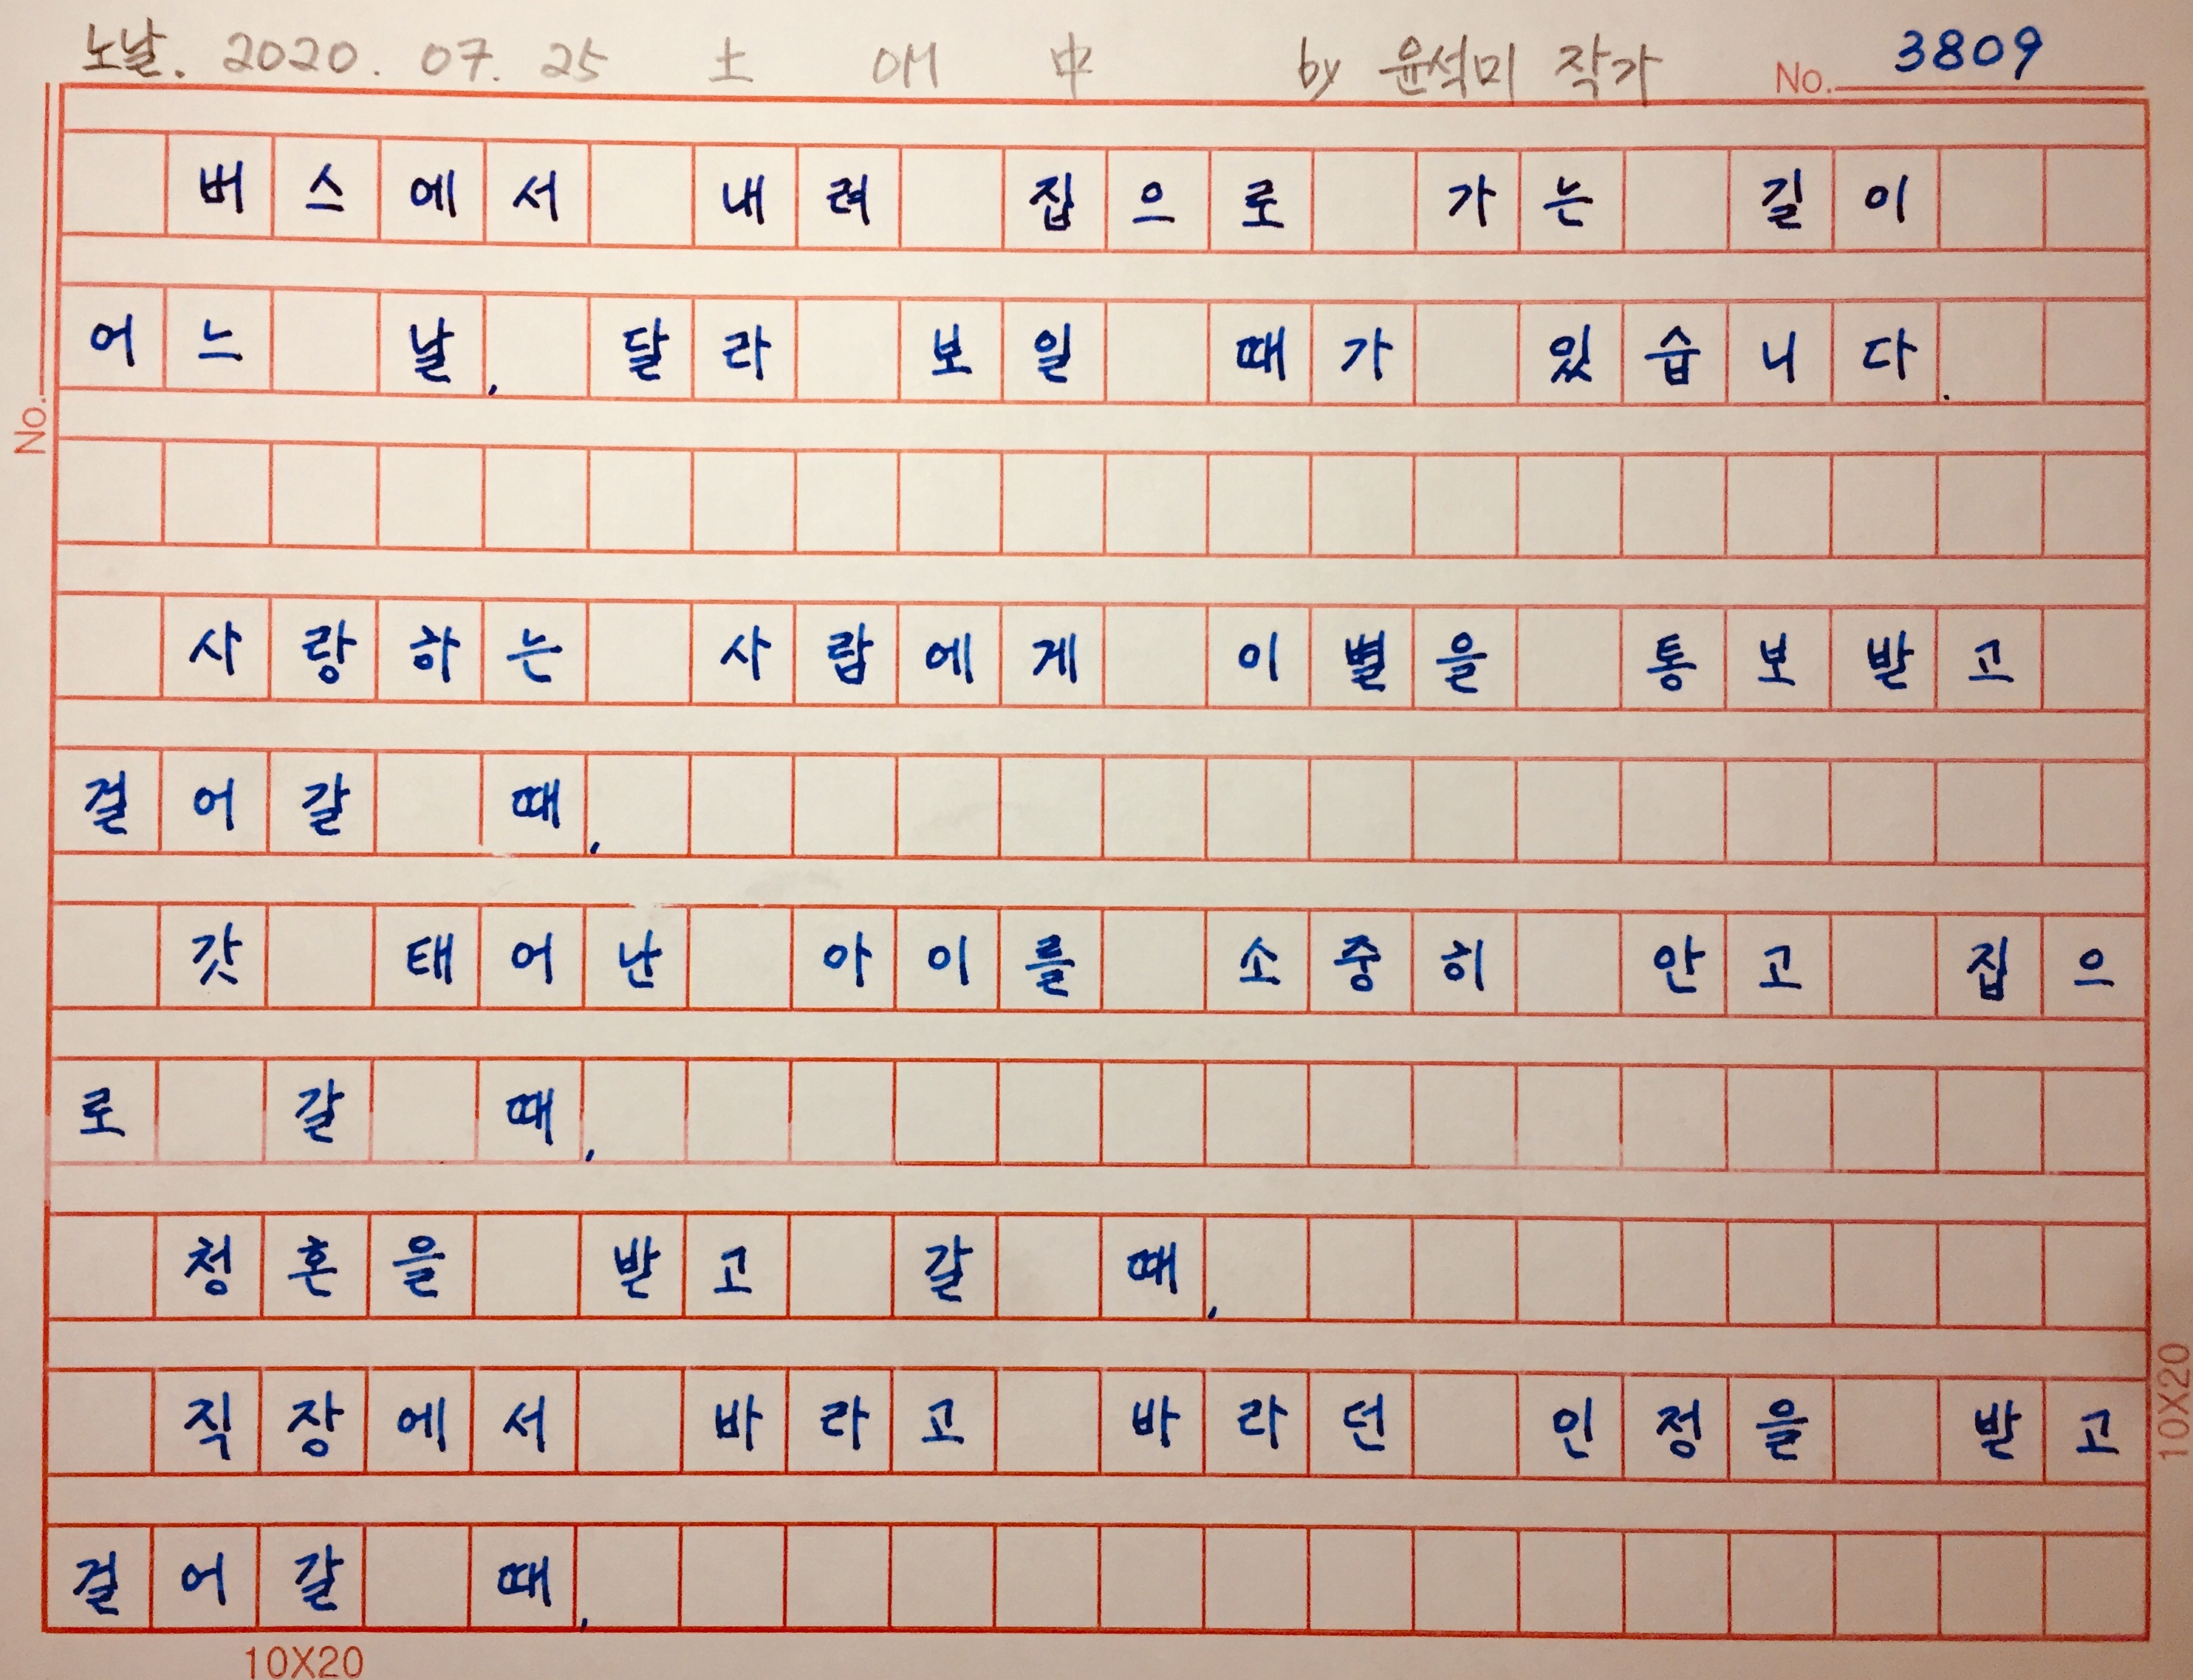 노날. 2020. 07. 25 土 OM 中 by 윤석미 작가 No. 3809
버스에서 내려 집으로 가는 길이
어느 날, 달라 보일 때가 있습니다.
No.
사랑하는 사람에게 이별을 통보받고
걸어갈 때,
갓 태어난 아이를 소중히 안고 집으
로 갈 때,
청혼을 받고 갈 때,
직장에서 바라고 바라던 인정을 받고
10X20
걸어갈 때,
10X20